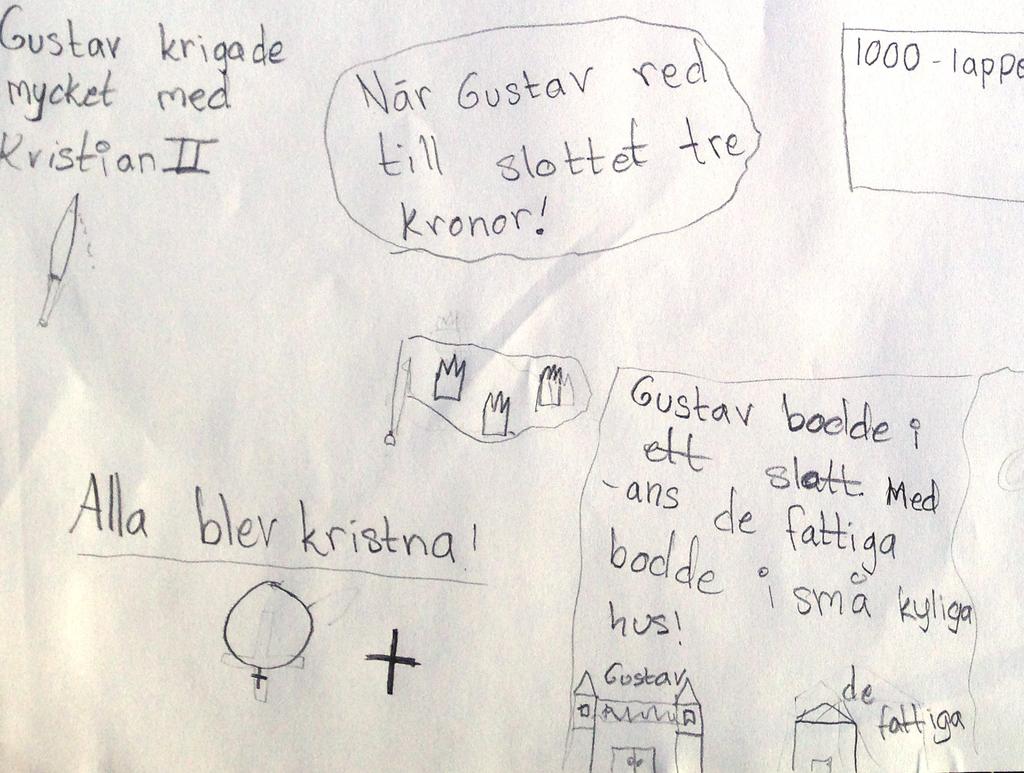 Gustav krigade
mycket med
Kristian II
När Gustav red
till slottet tre
kronor!
1000-lappe
Alla blev kristna!
Gustav bodde i
ett slott. Med
-ans de fattiga
bodde i små kyliga
hus!
Gustav
de
fattiga